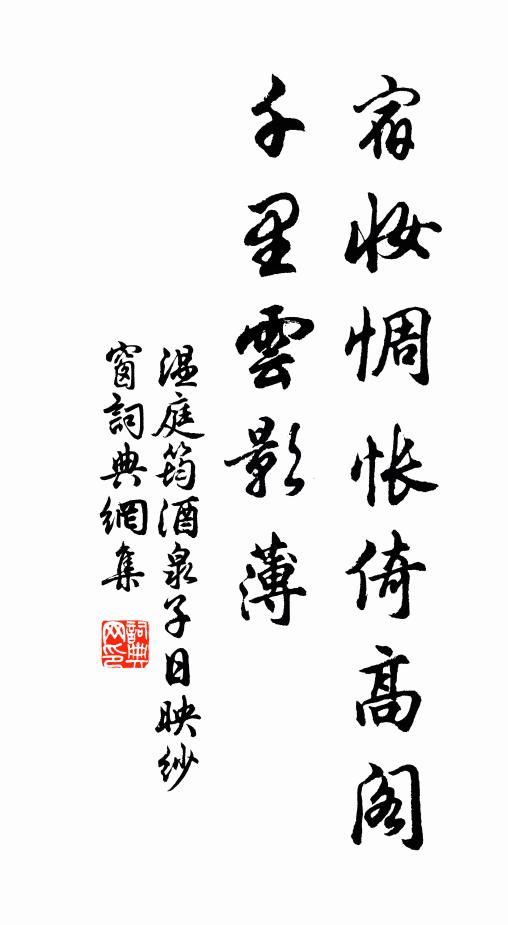 宿妆惆怅倚高阁
千里雲影薄
温庭筠酒泉子日映紗
窗詞典網集
詞典
网印